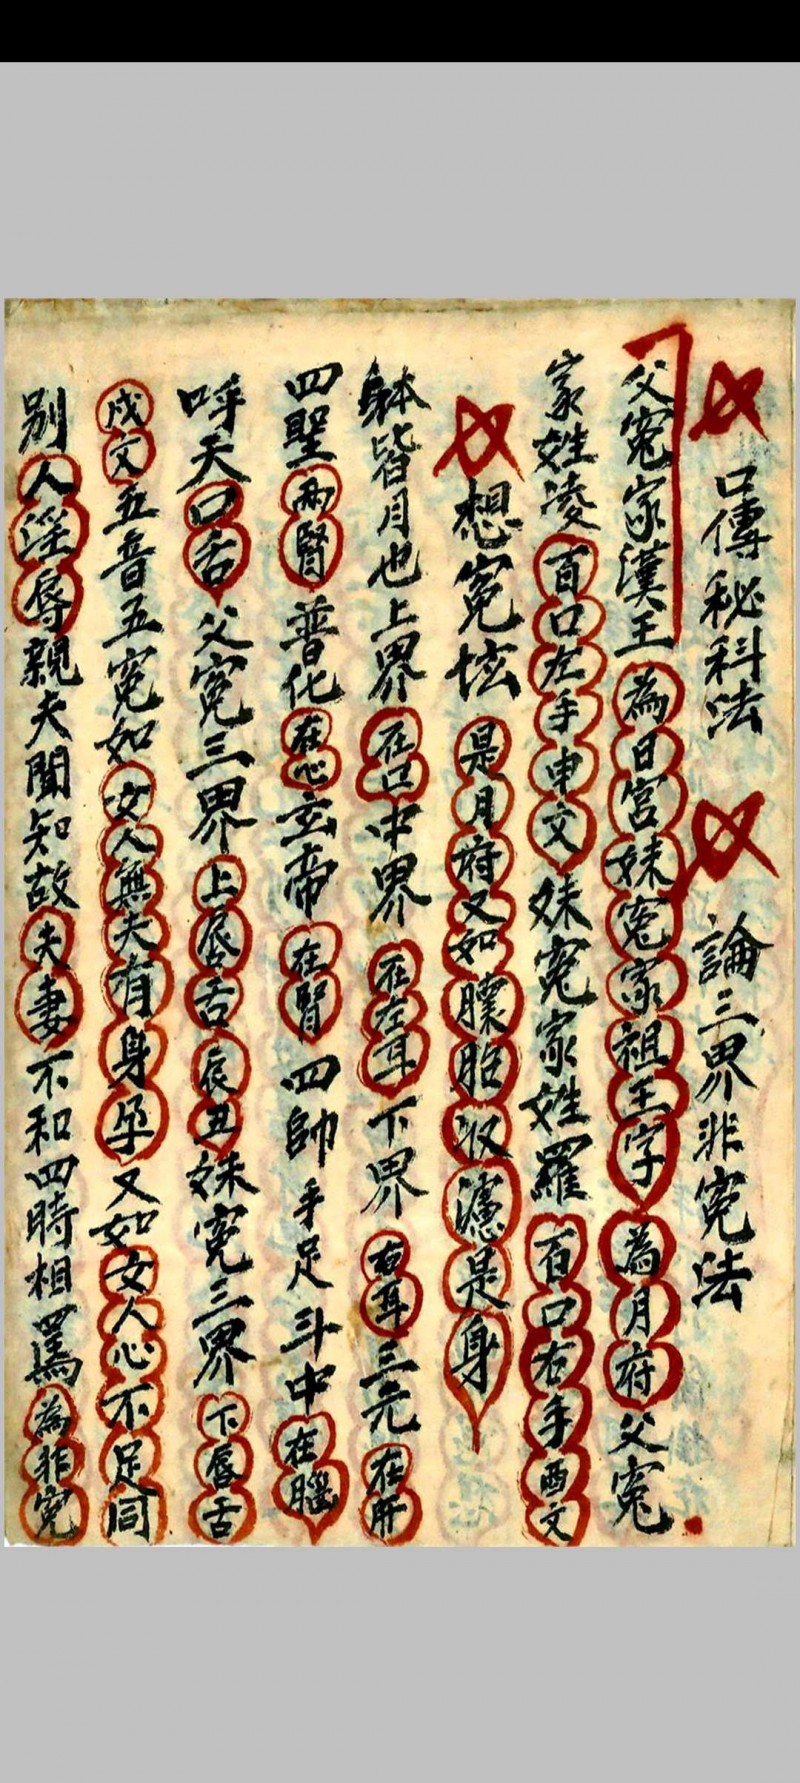 口傳秘科法 論三界非冤法
父冤家漢王為日宮妹冤家祖王字為月府父冤
家姓凌百口左手申文妹冤家姓羅百口右手酉文
想冤坛是月府又如臁胎収濾是身
躰皆月也上界在口中界在左耳下界右耳三元在肝
四聖兩腎普化在心玄帝在腎四帥手足斗中在腦
呼天口舌父冤三界上唇舌辰丑妹冤三界下唇舌
戍文五音五冤如女人無夫有身孕又如女人心不足同
別人淫辱親夫聞知故夫妻不和四時相罵為非冤